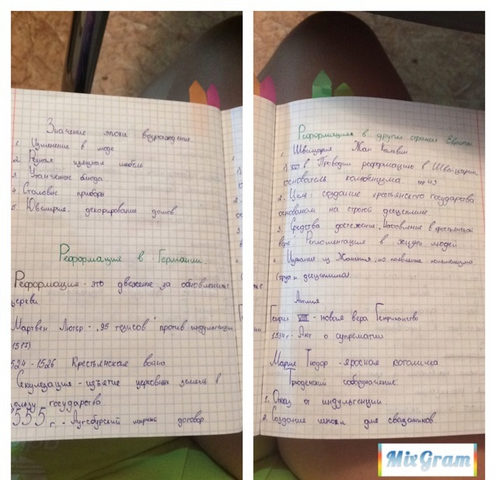 Значение эпохи возрождения.
1. Изменение в моде
2. Резная изящная мебель
3. Изысканные блюда
4. Столовые приборы
5. Ювелирн. декорирование домов
Реформация в Германии
Реформация - это движение за обновление
церкви
Мартин Лютер - „95 тезисов" против индульгенции
1517)
1524 - 1526 Крестьянская война
Секуляризация - изъятие церковных земель в
пользу государства
1555 г. - Аугсбургский мирный договор.
Реформация в других странах Европы
Швейцария Жан Кальвин
1. XVI в Проводил реформацию в Швейцарии
основатель кальвинизма
2. Цель: создание христианского государства
основанном на строгой дисциплине
3. Средства достижения:
вере. Регламентация в жизни людей
4. Женевы
(труд и дисциплина)
Англия
Генрих VIII - новая вера
1534 г. - Акт о супрематии
Мария Тюдор - яростная католичка
1. Отказ от индульгенции
2. Создание школы для священников.
MixGram